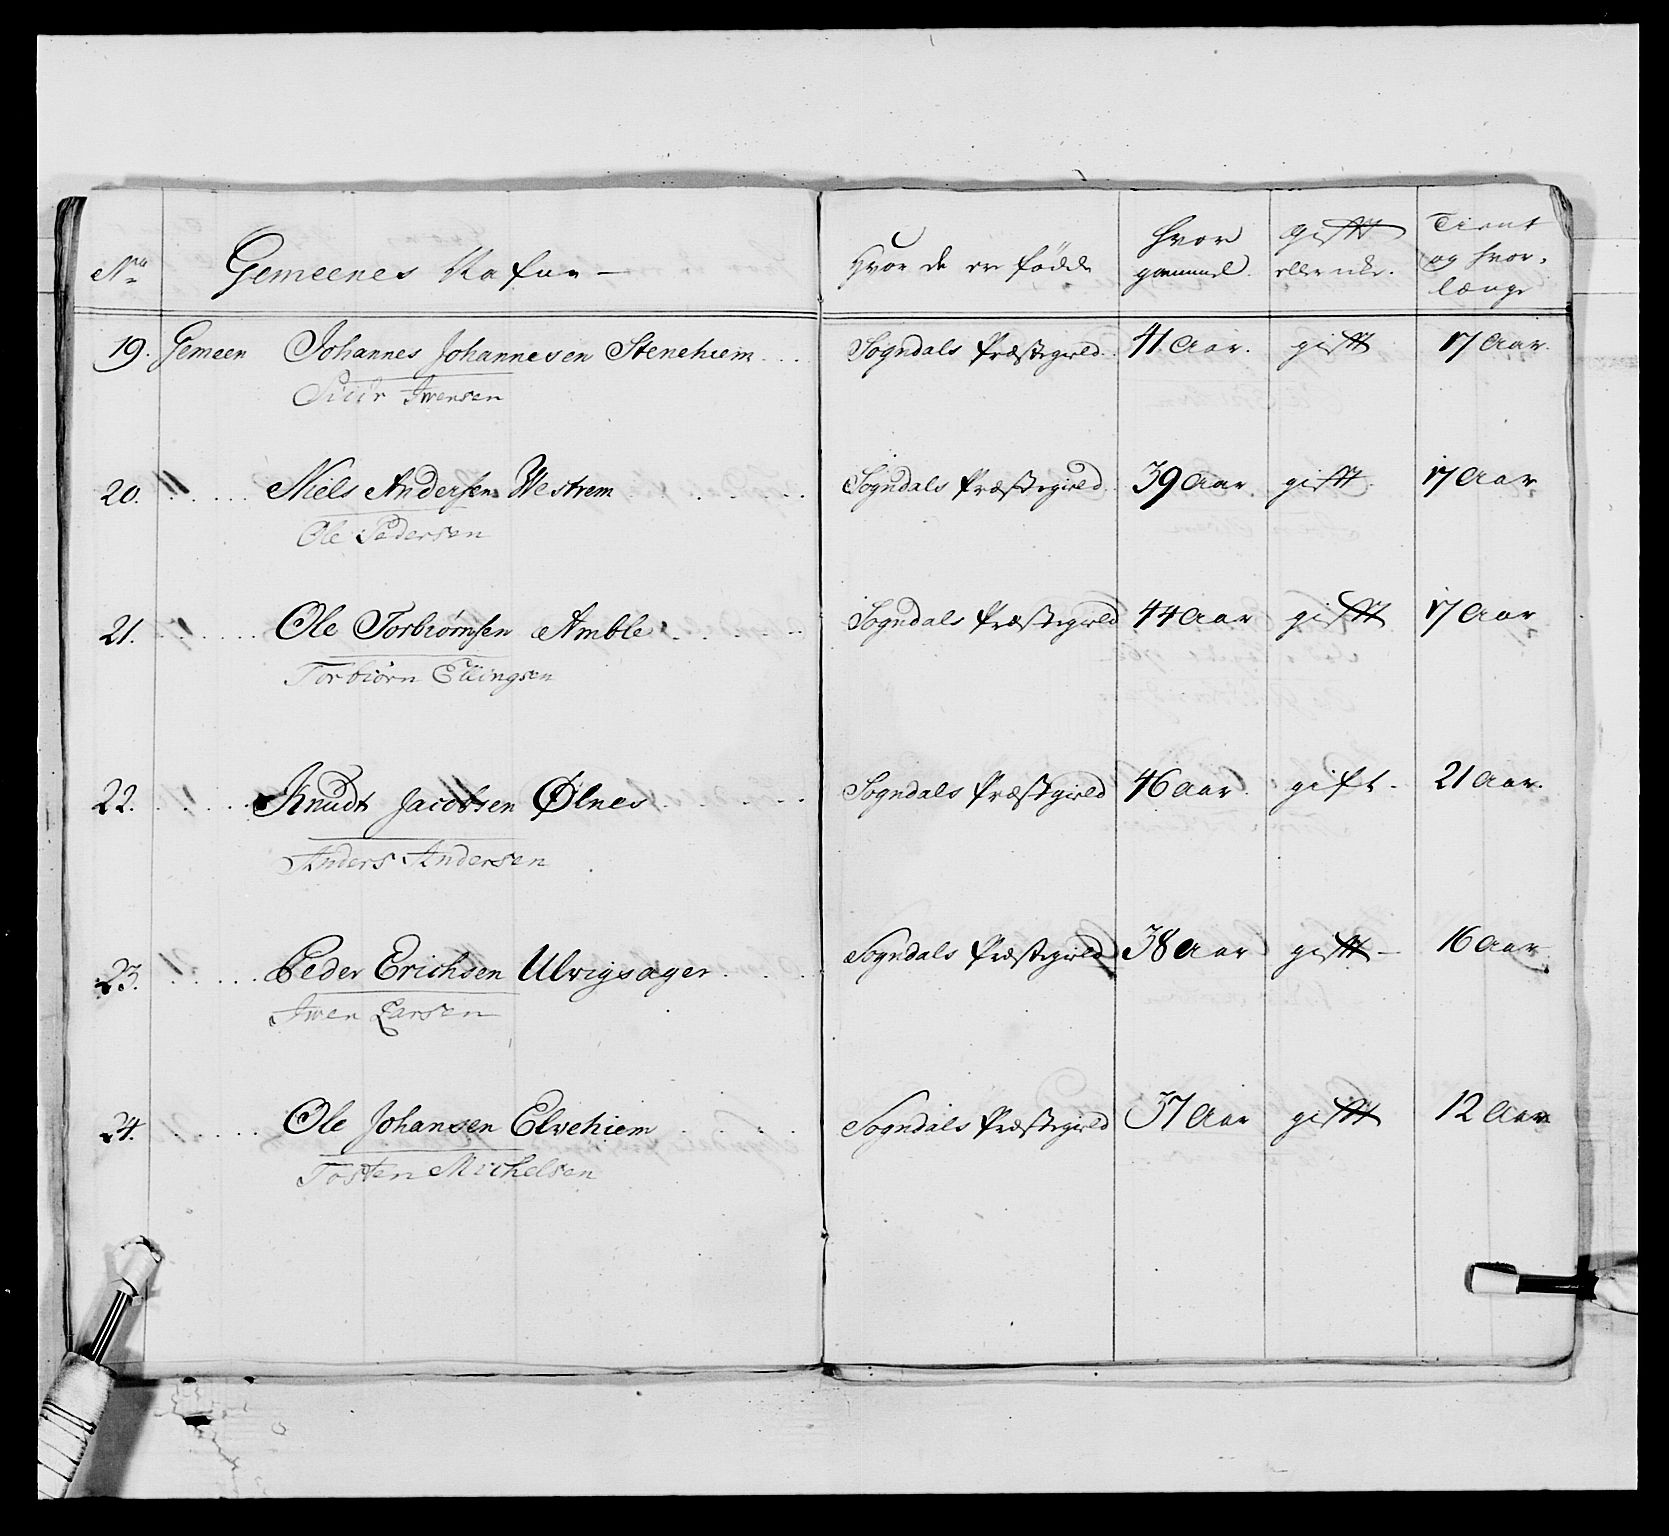 No Gemeenes Nafne — Hvor de er fødde hvor gammel. gifft eller ikke. Tient og hvor, længe
19. Gemeen Johannes Johannesen Stenehiem... Sogndals Præstegield. 41 Aar. gifft 17 Aar.
Siur Iwersen
20. " .... Niels Andersen Westrem ..... Sogndals Præstegield. 39 Aar gifft. 17 Aar
Ole Pedersen
21. " .... Ole Torbiørnsen Amble ..... Sogndals Præstegield 44 Aar gifft 17 Aar
Torbiørn Ellingsen
22. " .... Knudt Jacobsen Ølnes ..... Sogndals Præstegield 46 Aar. gift - 21 Aar.
Anders Andersen
23. " .... Peder Erichsen Ulvigsager .... Sogndals Præstegield 38 Aar gifft — 16 Aar
Iwer Larsen
24. " .... Ole Johansen Elvehiem ..... Sogndals Præstegield 37 Aar gifft 12 Aar
Tosten Michelsen